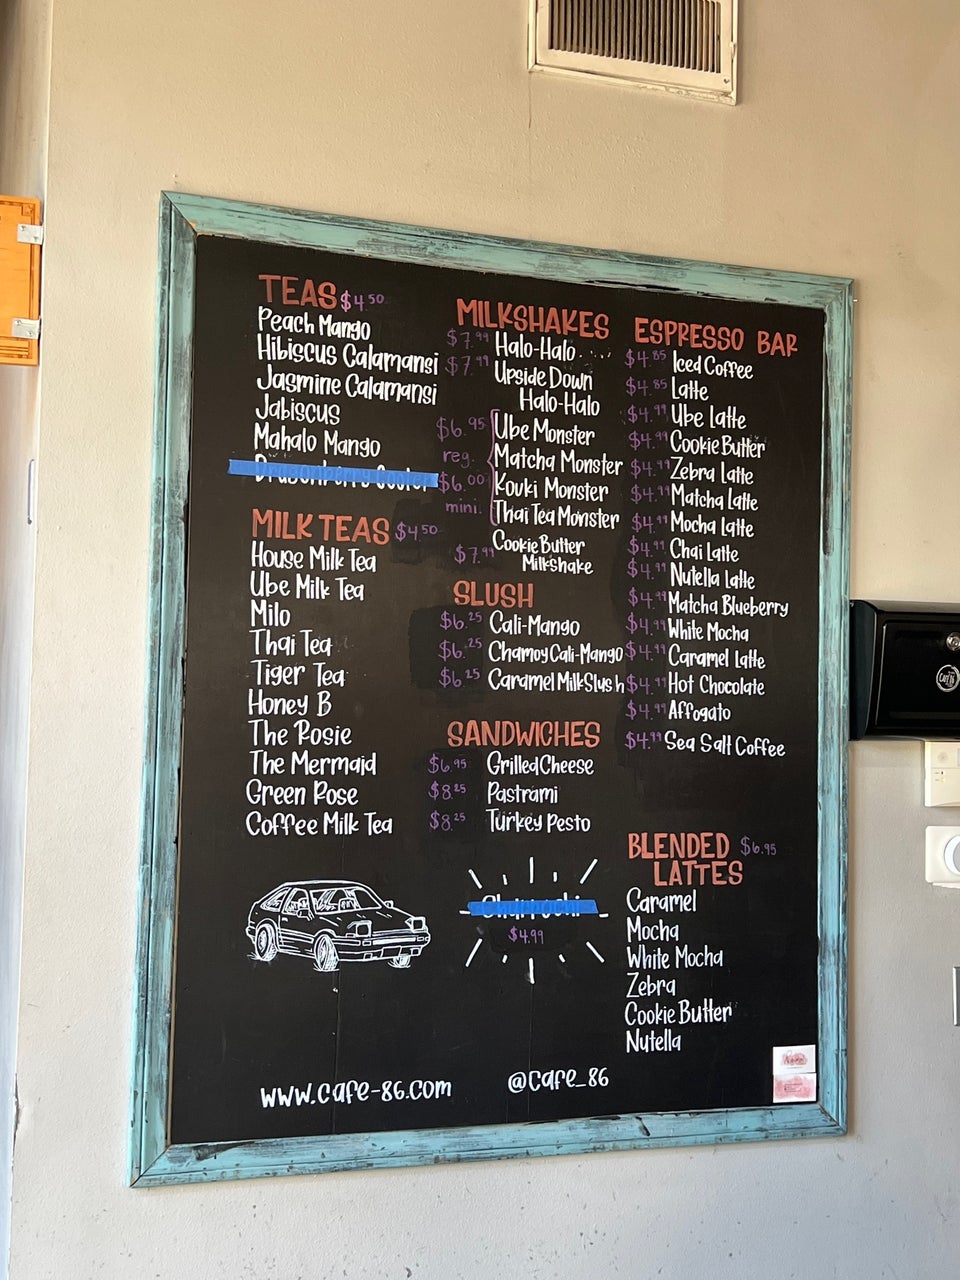 TEAS $4.50
Peach Mango
Hibiscus Calamansi
Jasmine Calamansi
Jabiscus
Mahalo Mango
MILK TEAS $4.50
House Milk Tea
Ube Milk Tea
Milo
Thai Tea
Tiger Tea
Honey B
The Rosie
The Mermaid
Green Rose
Coffee Milk Tea
MILKSHAKES
$7.99 Halo-Halo
$7.99 Upside Down
Halo-Halo
$6.95 Ube Monster
reg. Matcha Monster
$6.00 Kouki Monster
mini. Thai Tea Monster
$7.99 Cookie Butter
Milkshake
SLUSH
$6.25 Cali-Mango
$6.25 Chamoy Cali-Mango
$6.25 Caramel Milk Slush
SANDWICHES
$6.95 Grilled Cheese
$8.25 Pastrami
$8.25 Turkey Pesto
$4.99
ESPRESSO BAR
$4.85 Iced Coffee
$4.85 Latte
$4.99 Ube Latte
$4.99 Cookie Butter
$4.99 Zebra Latte
$4.99 Matcha Latte
$4.99 Mocha Latte
$4.99 Chai Latte
$4.99 Nutella Latte
$4.99 Matcha Blueberry
$4.99 White Mocha
$4.99 Caramel Latte
$4.99 Hot Chocolate
$4.99 Affogato
$4.99 Sea Salt Coffee
BLENDED $6.95
LATTES
Caramel
Mocha
White Mocha
Zebra
Cookie Butter
Nutella
www.cafe-86.com
@cafe_86